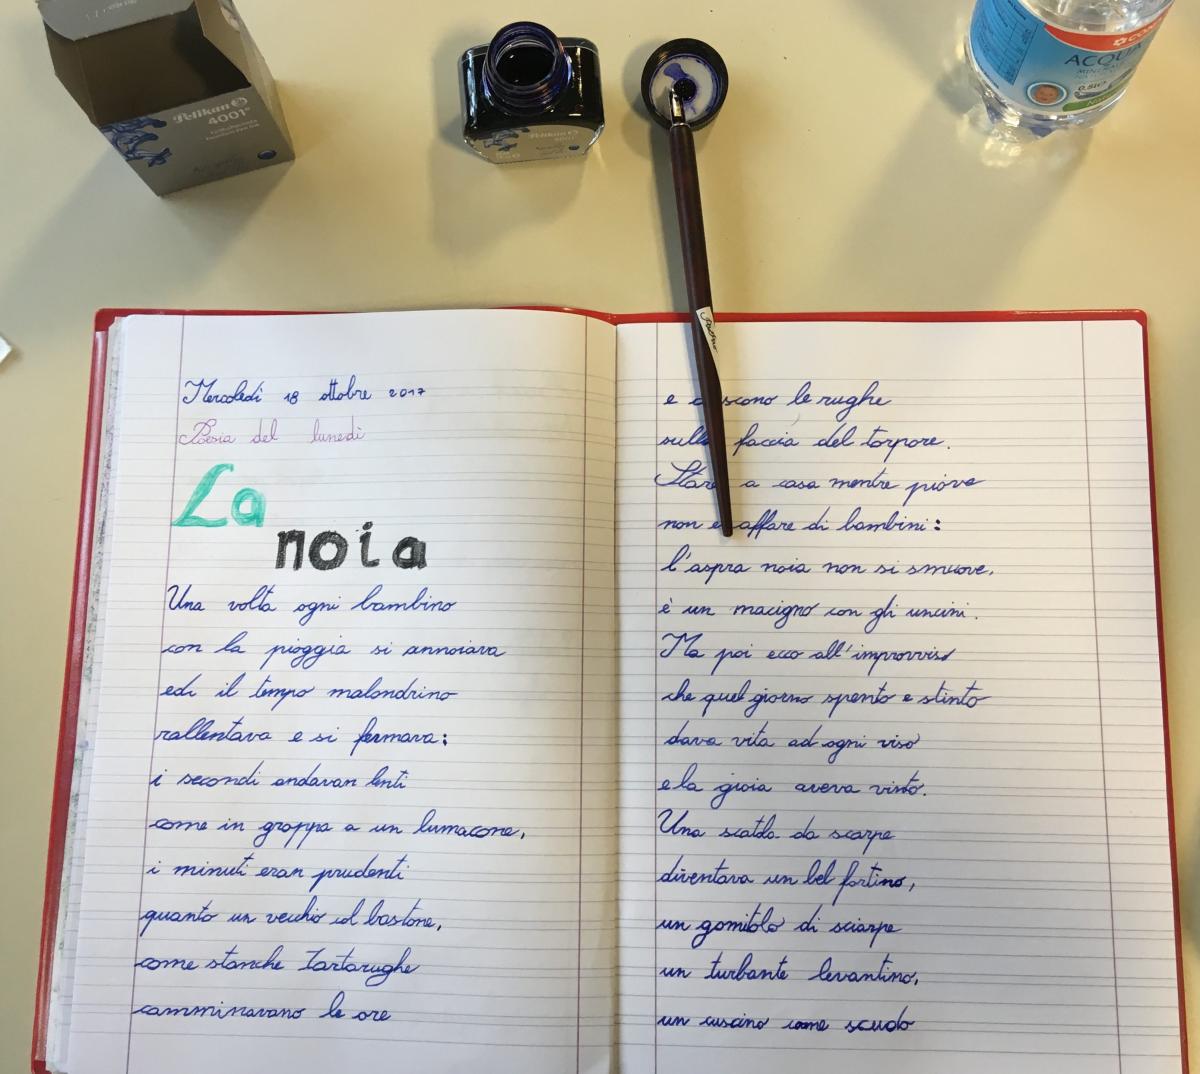 Pelikan
4001
Pelikan
ACQUA
0,5L
Mercoledì 18 ottobre 2017
Poesia del lunedì
La
noia
Una volta ogni bambino
con la pioggia si annoiava
ed il tempo malandrino
rallentava e si fermava:
i secondi andavan lenti
come in groppa a un lumacone,
i minuti eran prudenti
quanto un vecchio col bastone,
come stanche tartarughe
camminavano le ore
e le rughe
sulla faccia del torpore.
Stare a casa mentre piove
non è affare di bambini:
l'aspra noia non si smuove,
è un macigno con gli uncini.
Ma poi ecco all'improvviso
che quel giorno spento e stinto
dava vita ad ogni viso
e la gioia aveva vinto.
Una scatola da scarpe
diventava un bel fortino,
un gomitolo di sciarpe
un turbante levantino,
un cuscino come scudo